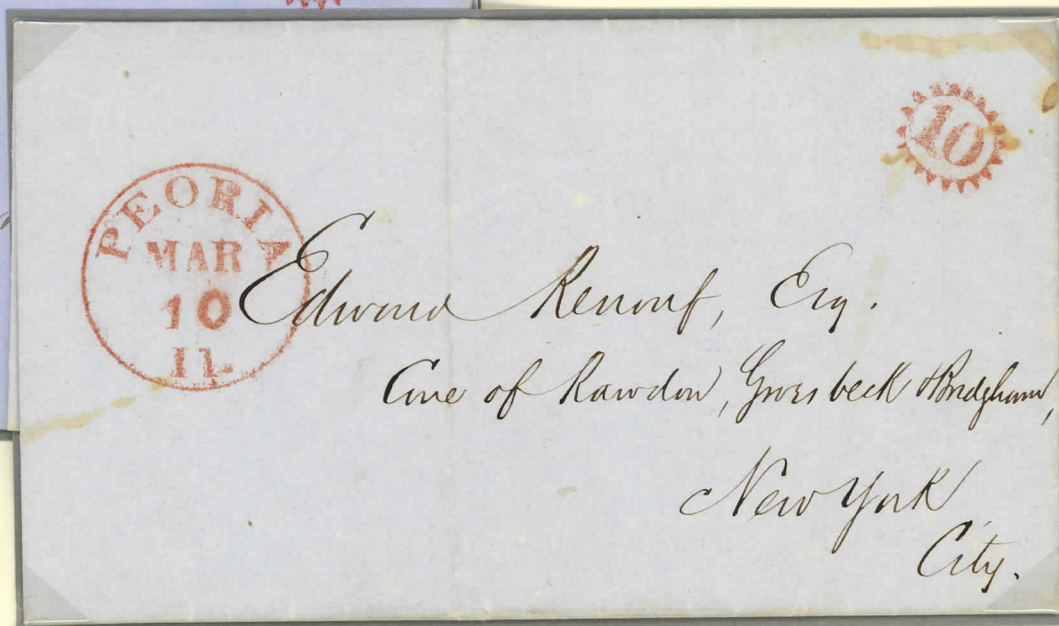 10
PEORIA
MAR
10
Il.
Edward Renouf, Esq.
Care of Rawdon, Groesbeck & Bridgham,
New York
City.